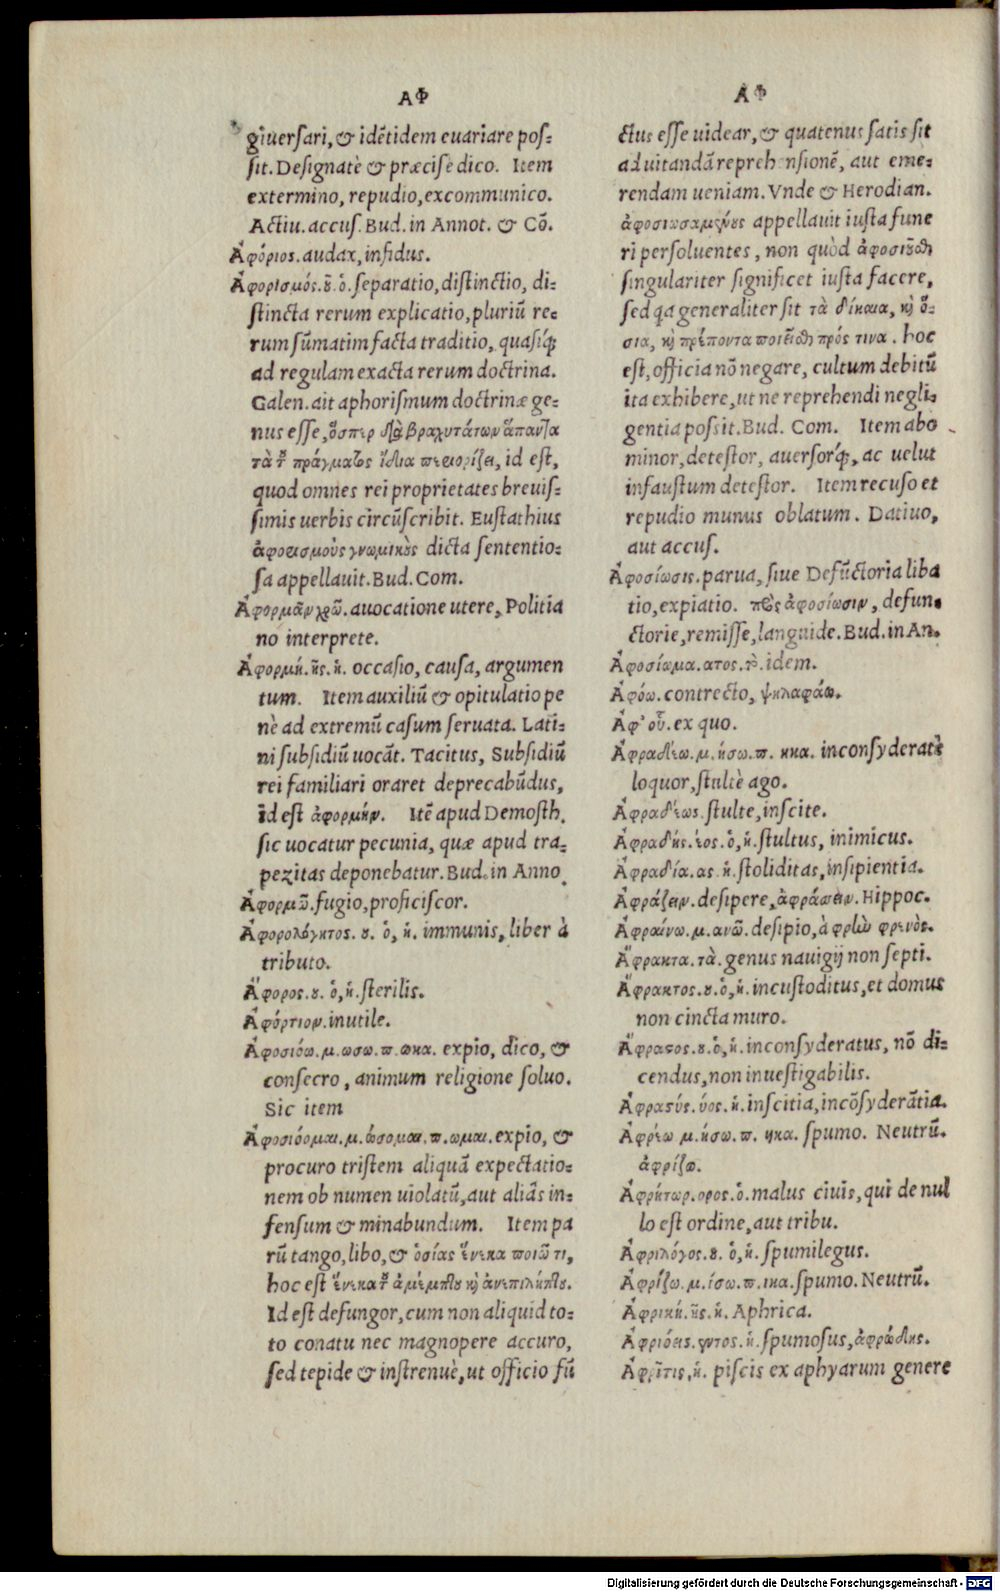 ΑΦ
giuersari, & idẽtidem euariare pos-
sit. Designatè & præcisè dico. Item
extermino, repudio, excommunico.
Actiu. accus. Bud. in Annot. & Cõ.
Ἀφόριος. audax, infidus.
Ἀφορισμός. οῦ. ὁ. separatio, distinctio, di-
stincta rerum explicatio, pluriũ re-
rum sũmatim facta traditio, quasiq́;
ad regulam exacta rerum doctrina.
Galen. ait aphorismum doctrinæ ge-
nus esse, ὅσπερ διὰ βραχυτάτων ἅπαντα
τὰ τοῦ πράγματος ἴδια περιορίζει, id est,
quod omnes rei proprietates breuis-
simis uerbis circũscribit. Eustathius
ἀφορισμοὺς γνωμικοὺς dicta sententio-
sa appellauit. Bud. Com.
Ἀφορμᾶν χρῶ. auocatione utere, Politia
no interprete.
Ἀφορμή. ῆς. ἡ. occasio, causa, argumen
tum. Item auxiliũ & opitulatio pe
nè ad extremũ casum seruata. Lati-
ni subsidiũ uocãt. Tacitus, Subsidiũ
rei familiari oraret deprecabũdus,
id est ἀφορμήν. Itẽ apud Demosth.
sic uocatur pecunia, quæ apud tra-
pezitas deponebatur. Bud. in Anno.
Ἀφορμῶ. fugio, proficiscor.
Ἀφορολόγητος. ου. ὁ, ἡ. immunis, liber à
tributo.
Ἄφορος. ου. ὁ, ἡ. sterilis.
Ἀφόρτιον. inutile.
Ἀφοσιόω. μ. ωσω. π. ωκα. expio, dico, &
consecro, animum religione soluo.
Sic item
Ἀφοσιόομαι. μ. ώσομαι. π. ωμαι. expio, &
procuro tristem aliquã expectatio-
nem ob numen uiolatũ, aut aliâs in-
fensum & minabundum. Item pa
rũ tango, libo, & ὁσίας ἕνεκα ποιῶ τι,
hoc est ἕνεκα τοῦ ἀμέμπτου καὶ ἀνεπιλήπτου.
Id est defungor, cum non aliquid to-
to conatu nec magnopere accuro,
sed tepide & instrenuè, ut officio fũ
ΑΦ
ctus esse uidear, & quatenus satis sit
ad uitandã reprehensionẽ, aut eme-
rendam ueniam. Vnde & Herodian.
ἀφοσιωσαμένους appellauit iusta fune
ri persoluentes, non quòd ἀφοσιοῦσθαι
singulariter significet iusta facere,
sed qa generaliter sit τὰ δίκαια, καὶ ὅ-
σια, καὶ πρέποντα ποιεῖσθαι πρός τινα. hoc
est, officia nõ negare, cultum debitũ
ita exhibere, ut ne reprehendi negli-
gentia possit. Bud. Com. Item abo
minor, detestor, auersorq́;, ac uelut
infaustum detestor. Item recuso et
repudio munus oblatum. Datiuo,
aut accus.
Ἀφοσίωσις. parua, siue Defũctoria liba
tio, expiatio. πρὸς ἀφοσίωσιν, defun-
ctorie, remisse, languide. Bud. in An.
Ἀφοσίωμα. ατος. τὸ. idem.
Ἀφόω. contrecto, ψηλαφάω.
Ἀφ' οὗ. ex quo.
Ἀφραδέω. μ. ήσω. π. ηκα. inconsyderatè
loquor, stultè ago.
Ἀφραδέως. stulte, inscite.
Ἀφραδής. έος. ὁ, ἡ. stultus, inimicus.
Ἀφραδία. ας. ἡ. stoliditas, insipientia.
Ἀφράζειν. desipere, ἀφράσειν. Hippoc.
Ἀφραίνω. μ. ανῶ. desipio, ὰ φρὴν φρενὸς.
Ἄφρακτα. τὰ. genus nauigij non septi.
Ἄφρακτος. ου. ὁ, ἡ. incustoditus, et domus
non cincta muro.
Ἄφραστος. ου. ὁ, ἡ. inconsyderatus, nõ di-
cendus, non inuestigabilis.
Ἀφραστύς. ύος. ἡ. inscitia, incõsyderãtia.
Ἀφρέω μ. ήσω. π. ηκα. spumo. Neutrũ.
ἀφρίζω.
Ἀφρήτωρ. ορος. ὁ. malus ciuis, qui de nul
lo est ordine, aut tribu.
Ἀφριλόγος. ου. ὁ, ἡ. spumilegus.
Ἀφρίζω. μ. ίσω. π. ικα. spumo. Neutrũ.
Ἀφρική. ῆς. ἡ. Aphrica.
Ἀφριόεις. εντος. ἡ. spumosus, ἀφρώδης.
Ἀφρῖτις, ἡ. piscis ex aphyarum genere
Digitalisierung gefördert durch die Deutsche Forschungsgemeinschaft - DFG